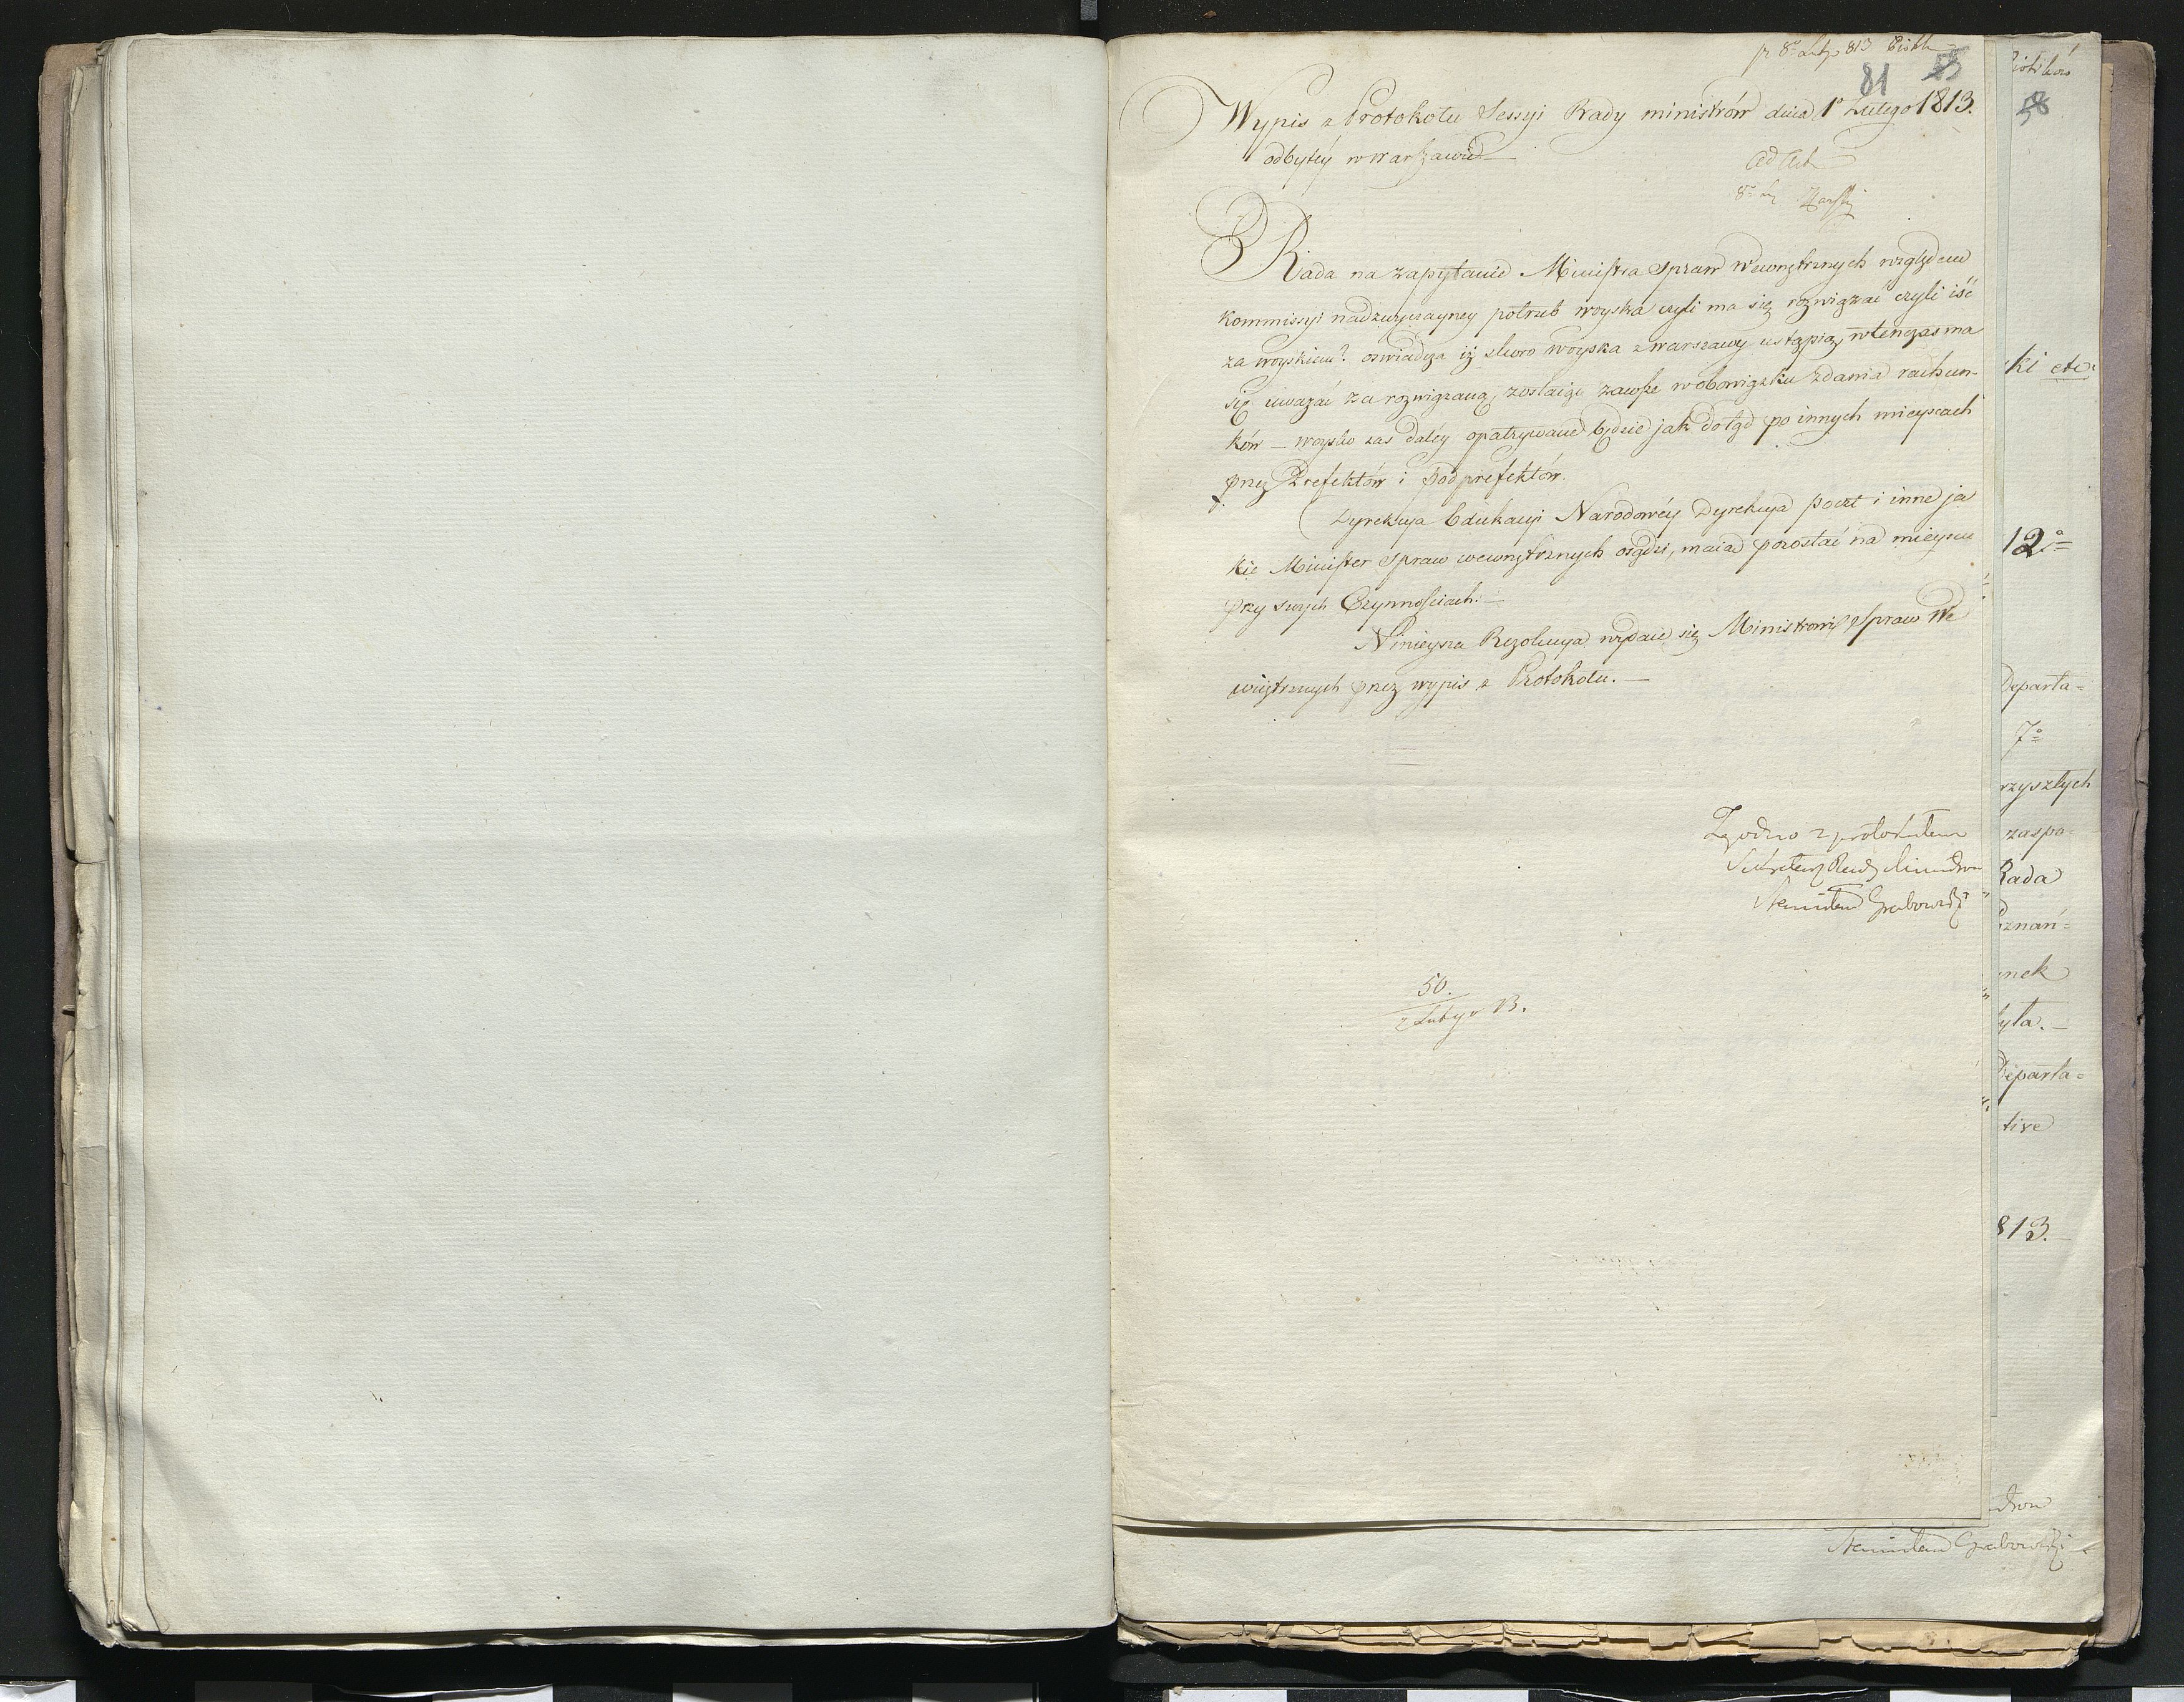 81
Wypis z Protokołu Sessyi Rady ministrów dnia 1° Lutego 1813.
odbytéy w Warszawie
Ad Acta
Rada na zapytanie Ministra Spraw Wewnętrznych względem
Kommissyi nadzwyczayney potrzeb woyska czyli ma się rozwiązać czyli iść
za woyskiem? oswiadcza iż skoro woyska z Warszawy ustąpią, wtenczas ma
się uważać za rozwiązaną, zostaiąc zawsze w obowiązku zdania rachun-
ków – woysko zas daléy opatrywane będzie jak dotąd po innych mieyscach
przez Prefektów i podprefektów.
Dyrekcya Edukacyi Narodowéy Dyrekcya poczt i inne ja
kie Minister Spraw wewnętrznych osądzi, maią pozostać na mieyscu
przy swych Czynnościach. –
Ninieysza Rezolucya wydaie się Ministrowi Spraw We
wnętrznych przez wypis z Protokołu. –
Zgodno z protokułem
Sekretarz Rady Ministrow
Stanisław Grabowski
50.
2 Lutego 13.
58
ki etc:
12°=
Departa=
7°=
rzyszłych
zaspo=
Rada
oznań=
nek
yta. –
Departa=
tive
813. –
Stanisław Grabowski